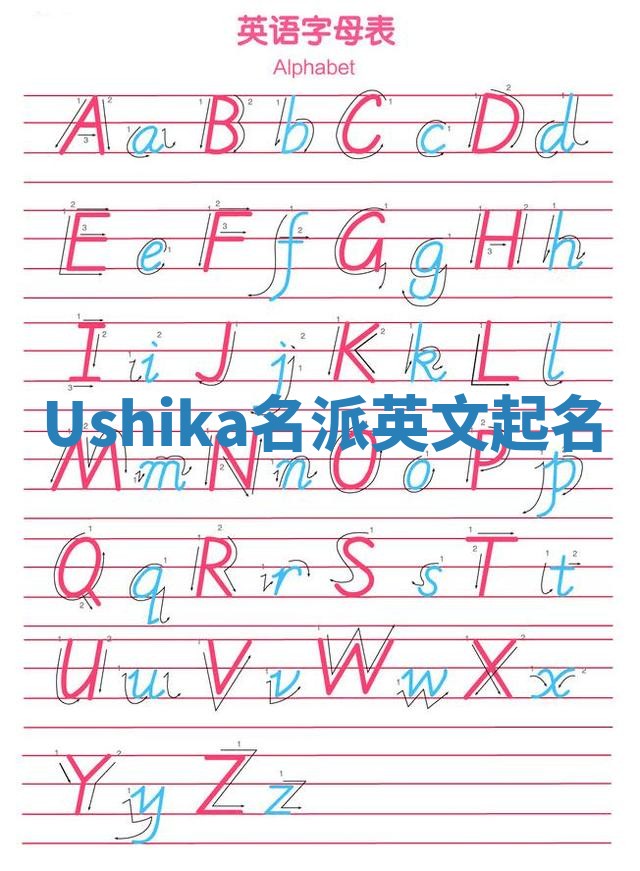 英语字母表
Alphabet
A a B b C c D d
E e F f G g H h
I i J j K k L l
Ushika名派英文起名
M m N n O o P p
Q q R r S s T t
U u V v W w X x
Y y Z z